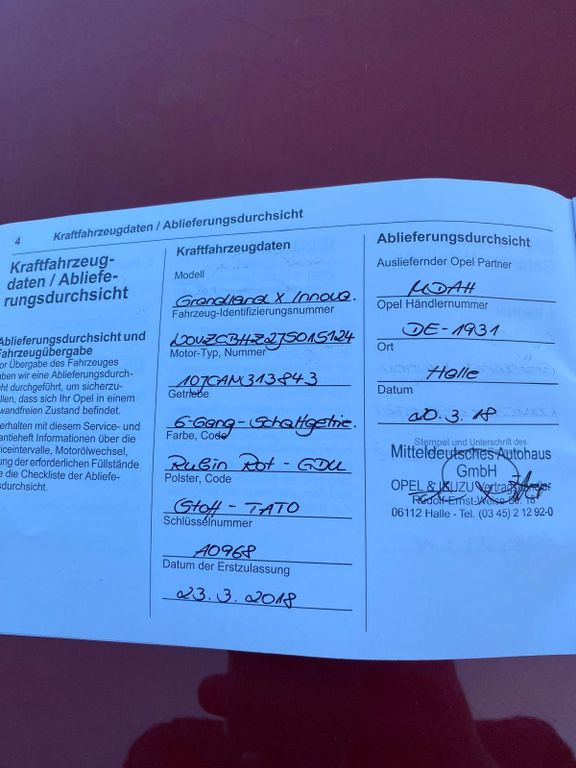 4 Kraftfahrzeugdaten / Ablieferungsdurchsicht
Kraftfahrzeug-
daten / Abliefe-
rungsdurchsicht
Ablieferungsdurchsicht und
Fahrzeugübergabe
or Übergabe des Fahrzeuges
aben wir eine Ablieferungsdurch-
cht durchgeführt, um sicherzu-
llen, dass sich Ihr Opel in einem
wandfreien Zustand befindet.
erhalten mit diesem Service- und
antieheft Informationen über die
iceintervalle, Motorölwechsel,
ung der erforderlichen Füllstände
e die Checkliste der Abliefe-
sdurchsicht.
Kraftfahrzeugdaten
Modell
Grandland X Innova.
Fahrzeug-Identifizierungsnummer
Motor-Typ, Nummer
10TCAM313843
Getriebe
6-Gang-Schaltgetrie.
Farbe, Code
Rubin Rot - GDU
Polster, Code
Stoff - TATO
Schlüsselnummer
A0968
Datum der Erstzulassung
23.3.2018
Ablieferungsdurchsicht
Ausliefernder Opel Partner
MDAH
Opel Händlernummer
DE-1931
Ort
Halle
Datum
20.3.18
Stempel und Unterschrift des
Mitteldeutsches Autohaus
GmbH
OPEL & ISUZU Vertragshändler
Rudolf-Ernst-Weise-Str. 18
06112 Halle · Tel. (03 45) 2 12 92-0